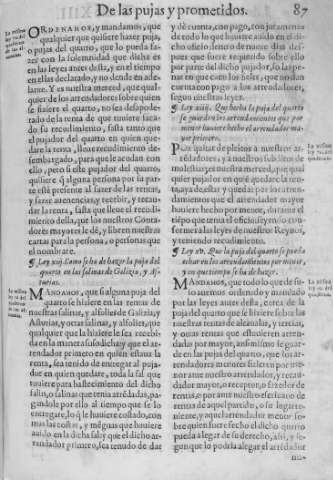 De las pujas y prometidos. 87
ORDENAMOS, y mandamos, que
qualquier que quisiere hazer puja,
o pujas del quarto, que lo pueda fa-
zer con la solennidad que dicha es
en las leyes antes desta, y en el tiempo
en ellas declarado, y no dende en ade-
lante. Y es nuestra merced, que qual-
quier de los arrendadores sobre quien
se fiziere el quarto, no sea desapode-
rado de la renta de que tuuiere saca-
do su recudimiento, fasta tanto que
el pujador del quarto en quien que-
dare la renta, lleue recudimiento de-
sembargado, para que le acudan con
ello, pero si el pujador del quarto,
quisiere que alguna persona por su par-
te esté presente al fazer de las rentas,
y fazer auenencias, y recebir, y recau-
dar la renta, fasta que lleue el recudi-
miento della, que los nuestros Conta-
dores mayores le dé, y libren nuestras
cartas para la persona, o personas que
el nombrare.
¶ Ley xiij. Como se ha de hazer la puja del
quarto en las salinas de Galizia, y As-
turias.
MANDAMOS, que si alguna puja del
quarto se hiziere en las rentas de
nuestras salinas, y alfolies de Galizia, y
Asturias, y otras salinas, y alfolies, que
qualquier que la hiziere le sea recebi-
da en la manera susodicha: y que el ar-
rendador primero en quien estaua la
renta, sea tenido de entregar al puja-
dor en quien quedare, toda la sal que
tuuiere para bastecimiento del dicho
alfoli, o salinas que tenia arrẽdadas, pa-
gandole por ello al tiempo que se lo
entregare, lo q̃ le huuiere costado, con
mas las costas, y menguas que huuiere
auido en la dicha sal: y que el dicho ar-
rendador primero, sea tenudo de dar
y dé cuenta, con pago, con juramento
de todo lo que huuiere auido en el
dicho oficio dende nueue dias des-
pues que fuere requerido sobre ello
por parte del dicho pujador, so las pe-
nas en que caen los fieles, que no dan
cuenta con pago a los arrendadores,
segun nuestras leyes.
¶ Ley xiiij. Que hecha la puja del quarto
se guarden los arrendamientos que por
menor huuiere hecho el arrendador ma-
yor primero.
POR quitar de pleitos a nuestros ar-
rendadores, y a nuestros subditos de
male, es nuestra merced, que qual
quier pujador en quien quedare la ren-
ta, aya de estar, y passar por los arren-
damientos que el arrendador mayor
huuiere hecho por menor, durante el
tiempo que tenia el oficio, seyendo con-
forme a las leyes de nuestros Reynos,
y teniendo recudimiento.
¶ Ley xv. Que la puja del quarto se pueda
echar en los arrendamientos por menor,
y en que tiempo se ha de hazer.
MANDAMOS, que todo lo que de su-
so auemos ordenado, y mandado
por las leyes antes desta, cerca de la
puja del quarto que se hiziere sobre las
nuestras rentas de alcaualas, y tercias,
y otras rentas que estuuieren arrenda-
das por mayor, ansi mismo se guar-
de en las pujas del quarto, que los ar-
rendadores menores hizieren por me-
nor ante nuestro arrendador, y recau-
dador mayor, o receptor, o fazedor de
rentas, o por ante nuestro escriuano de
rentas de aquel partido, o su lugarte-
niente, y aquel arrendador menor so-
bre quien fuere fecho el dicho quarto
pueda alegar de su derecho, assi, y se-
gun que lo podria alegar el arrendador